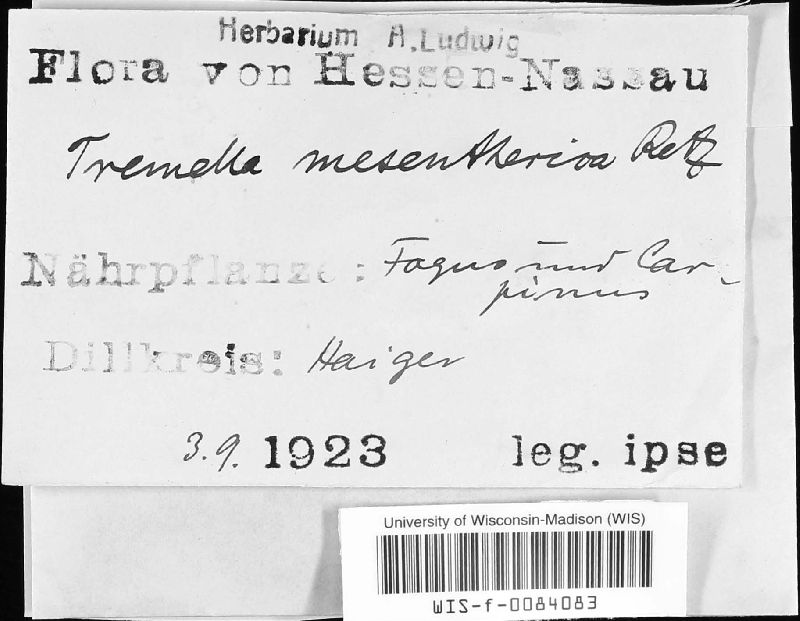 Herbarium A. Ludwig
Flora von Hessen-Nassau
Tremella mesentherica Retz
Nährpflanze: Fagus und Car-
pinus
Dillkreis: Haiger
3.9. 1923 leg. ipse
University of Wisconsin-Madison (WIS)
WIS-f-0084083